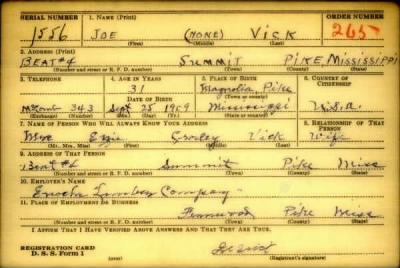 SERIAL NUMBER 1. NAME (Print) ORDER NUMBER
1556 JOE (NONE) VICK 265
(First) (Middle) (Last)
2. ADDRESS (Print)
BEAT #4 SUMMIT PIKE, MISSISSIPPI
(Number and street or R. F. D. number) (Town) (County) (State)
3. TELEPHONE 4. AGE IN YEARS 5. PLACE OF BIRTH 6. COUNTRY OF CITIZENSHIP
31 Magnolia, Pike
DATE OF BIRTH (Town or county)
343 Sept 25, 1909 Mississippi U.S.A
(Exchange) (Number) (Mo.) (Day) (Yr.) (State or country)
7. NAME OF PERSON WHO WILL ALWAYS KNOW YOUR ADDRESS 8. RELATIONSHIP OF THAT PERSON
Mrs Essie Vick Wife
(Mr., Mrs., Miss) (First) (Middle) (Last)
9. ADDRESS OF THAT PERSON
Beat #4 Summit Pike Miss
(Number and street or R. F. D. number) (Town) (County) (State)
10. EMPLOYER'S NAME
Enochs Lumber Company
11. PLACE OF EMPLOYMENT OR BUSINESS
Fernwood Pike Miss
(Number and street or R. F. D. number) (Town) (County) (State)
I AFFIRM THAT I HAVE VERIFIED ABOVE ANSWERS AND THAT THEY ARE TRUE.
REGISTRATION CARD
D. S. S. Form 1 (Registrant's signature)